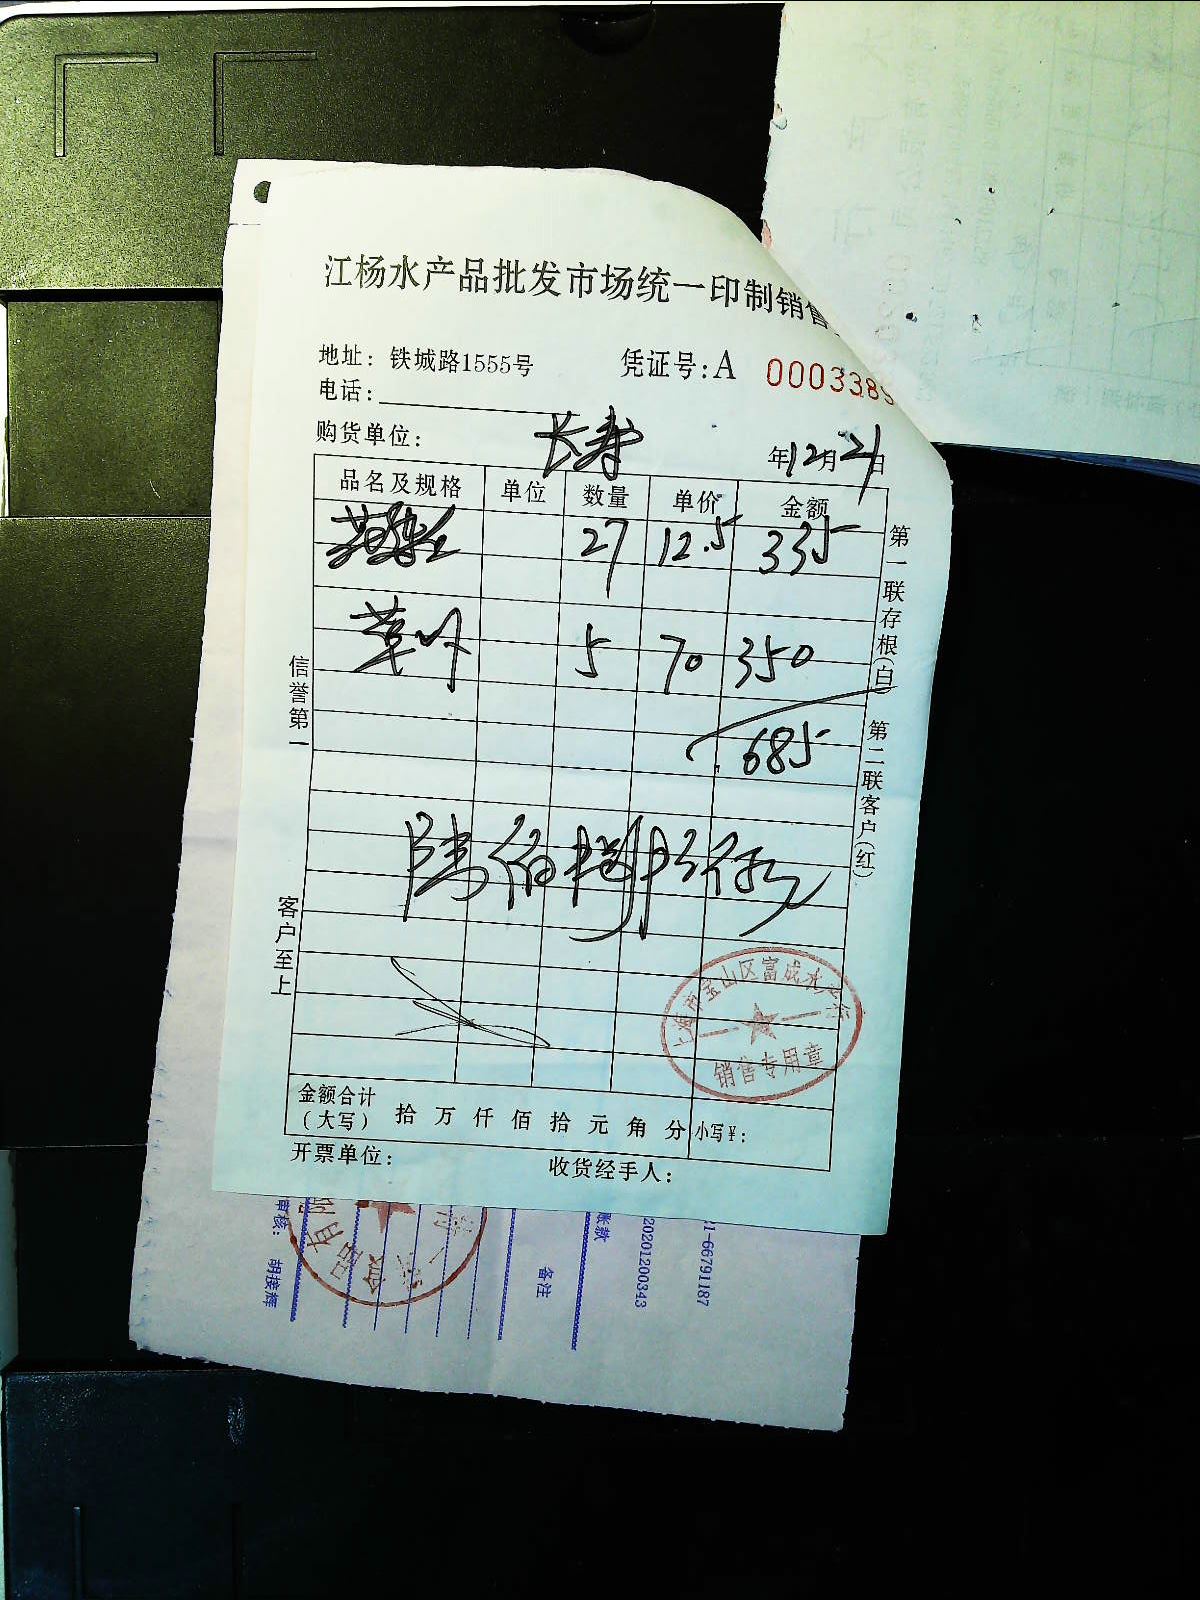 江杨水产品批发市场统一印制销售
地址：铁城路1555号
凭证号：A 0003389
电话：
购货单位：长寿
年12月21日
品名及规格 单位 数量 单价 金额
27 12.5 335
草虾 5 70 350
685
陆佰捌拾伍元
信誉第一
客户至上
第一联存根(白)
第二联客户(红)
上海市宝山区富成水产行
销售专用章
金额合计
（大写） 拾 万 仟 佰 拾 元 角 分 小写¥：
开票单位：
收货经手人：
审核： 胡接辉
备注
账款
20201200343
1-66791187